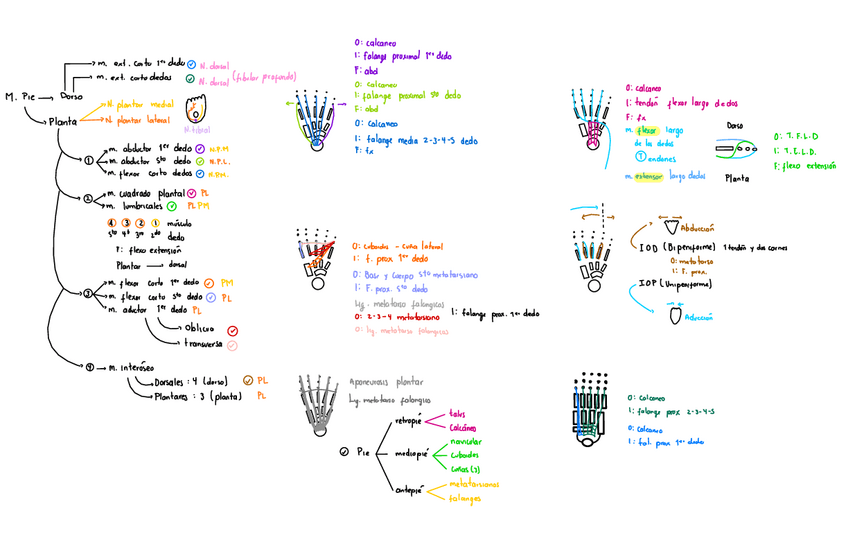 M. Pie
Dorso
m. ext. corto 1er dedo N. dorsal
m. ext. corto dedos N. dorsal (fibular profundo)
Planta
N. plantar medial
N. plantar lateral
N. tibial
1
m. abductor 1er dedo N.P.M
m. abductor 5to dedo N.P.L.
m. flexor corto dedos N.P.M.
2
m. cuadrado plantal PL
m. lumbricales PL PM
4 3 2 1 músculo
5to 4to 3ro 2do dedo
F: flexo extensión
Plantar dorsal
3
m. flexor corto 1er dedo PM
m. flexor corto 5to dedo PL
m. aductor 1er dedo PL
Oblicuo
transversa
4
m. interóseo
Dorsales: 4 (dorso) PL
Plantares: 3 (planta) PL
O: calcaneo
I: falange proximal 1er dedo
F: abd
O: calcaneo
I: falange proximal 5to dedo
F: abd
O: calcaneo
I: falange media 2-3-4-5 dedo
F: fx
O: cuboides - cuña lateral
I: f. prox. 1er dedo
O: Base y cuerpo 5to metatarsiano
I: F. prox. 5to dedo
Lig. metatarso falangicos
O: 2-3-4 metatarsiano
I: falange prox. 1er dedo
O: lig. metatarso falangicos
Aponeurosis plantar
Lig. metatarso falangico
Pie
retropié
talus
Calcáneo
mediopié
navicular
cuboides
cuñas (3)
antepié
metatarsianos
falanges
O: calcaneo
I: tendón flexor largo dedos
F: fx
m. flexor largo
de los dedos
T tendones
m. extensor largo dedos
Dorso
Planta
O: T.F.L.D
I: T.E.L.D.
F: flexo extensión
Abducción
IOD (Bipeniforme) 1 tendón y dos carnes
O: metatarso
I: F. prox.
IOP (Unipeniforme)
Aducción
O: calcaneo
I: falange prox 2-3-4-5
O: calcaneo
I: fal. prox 1er dedo